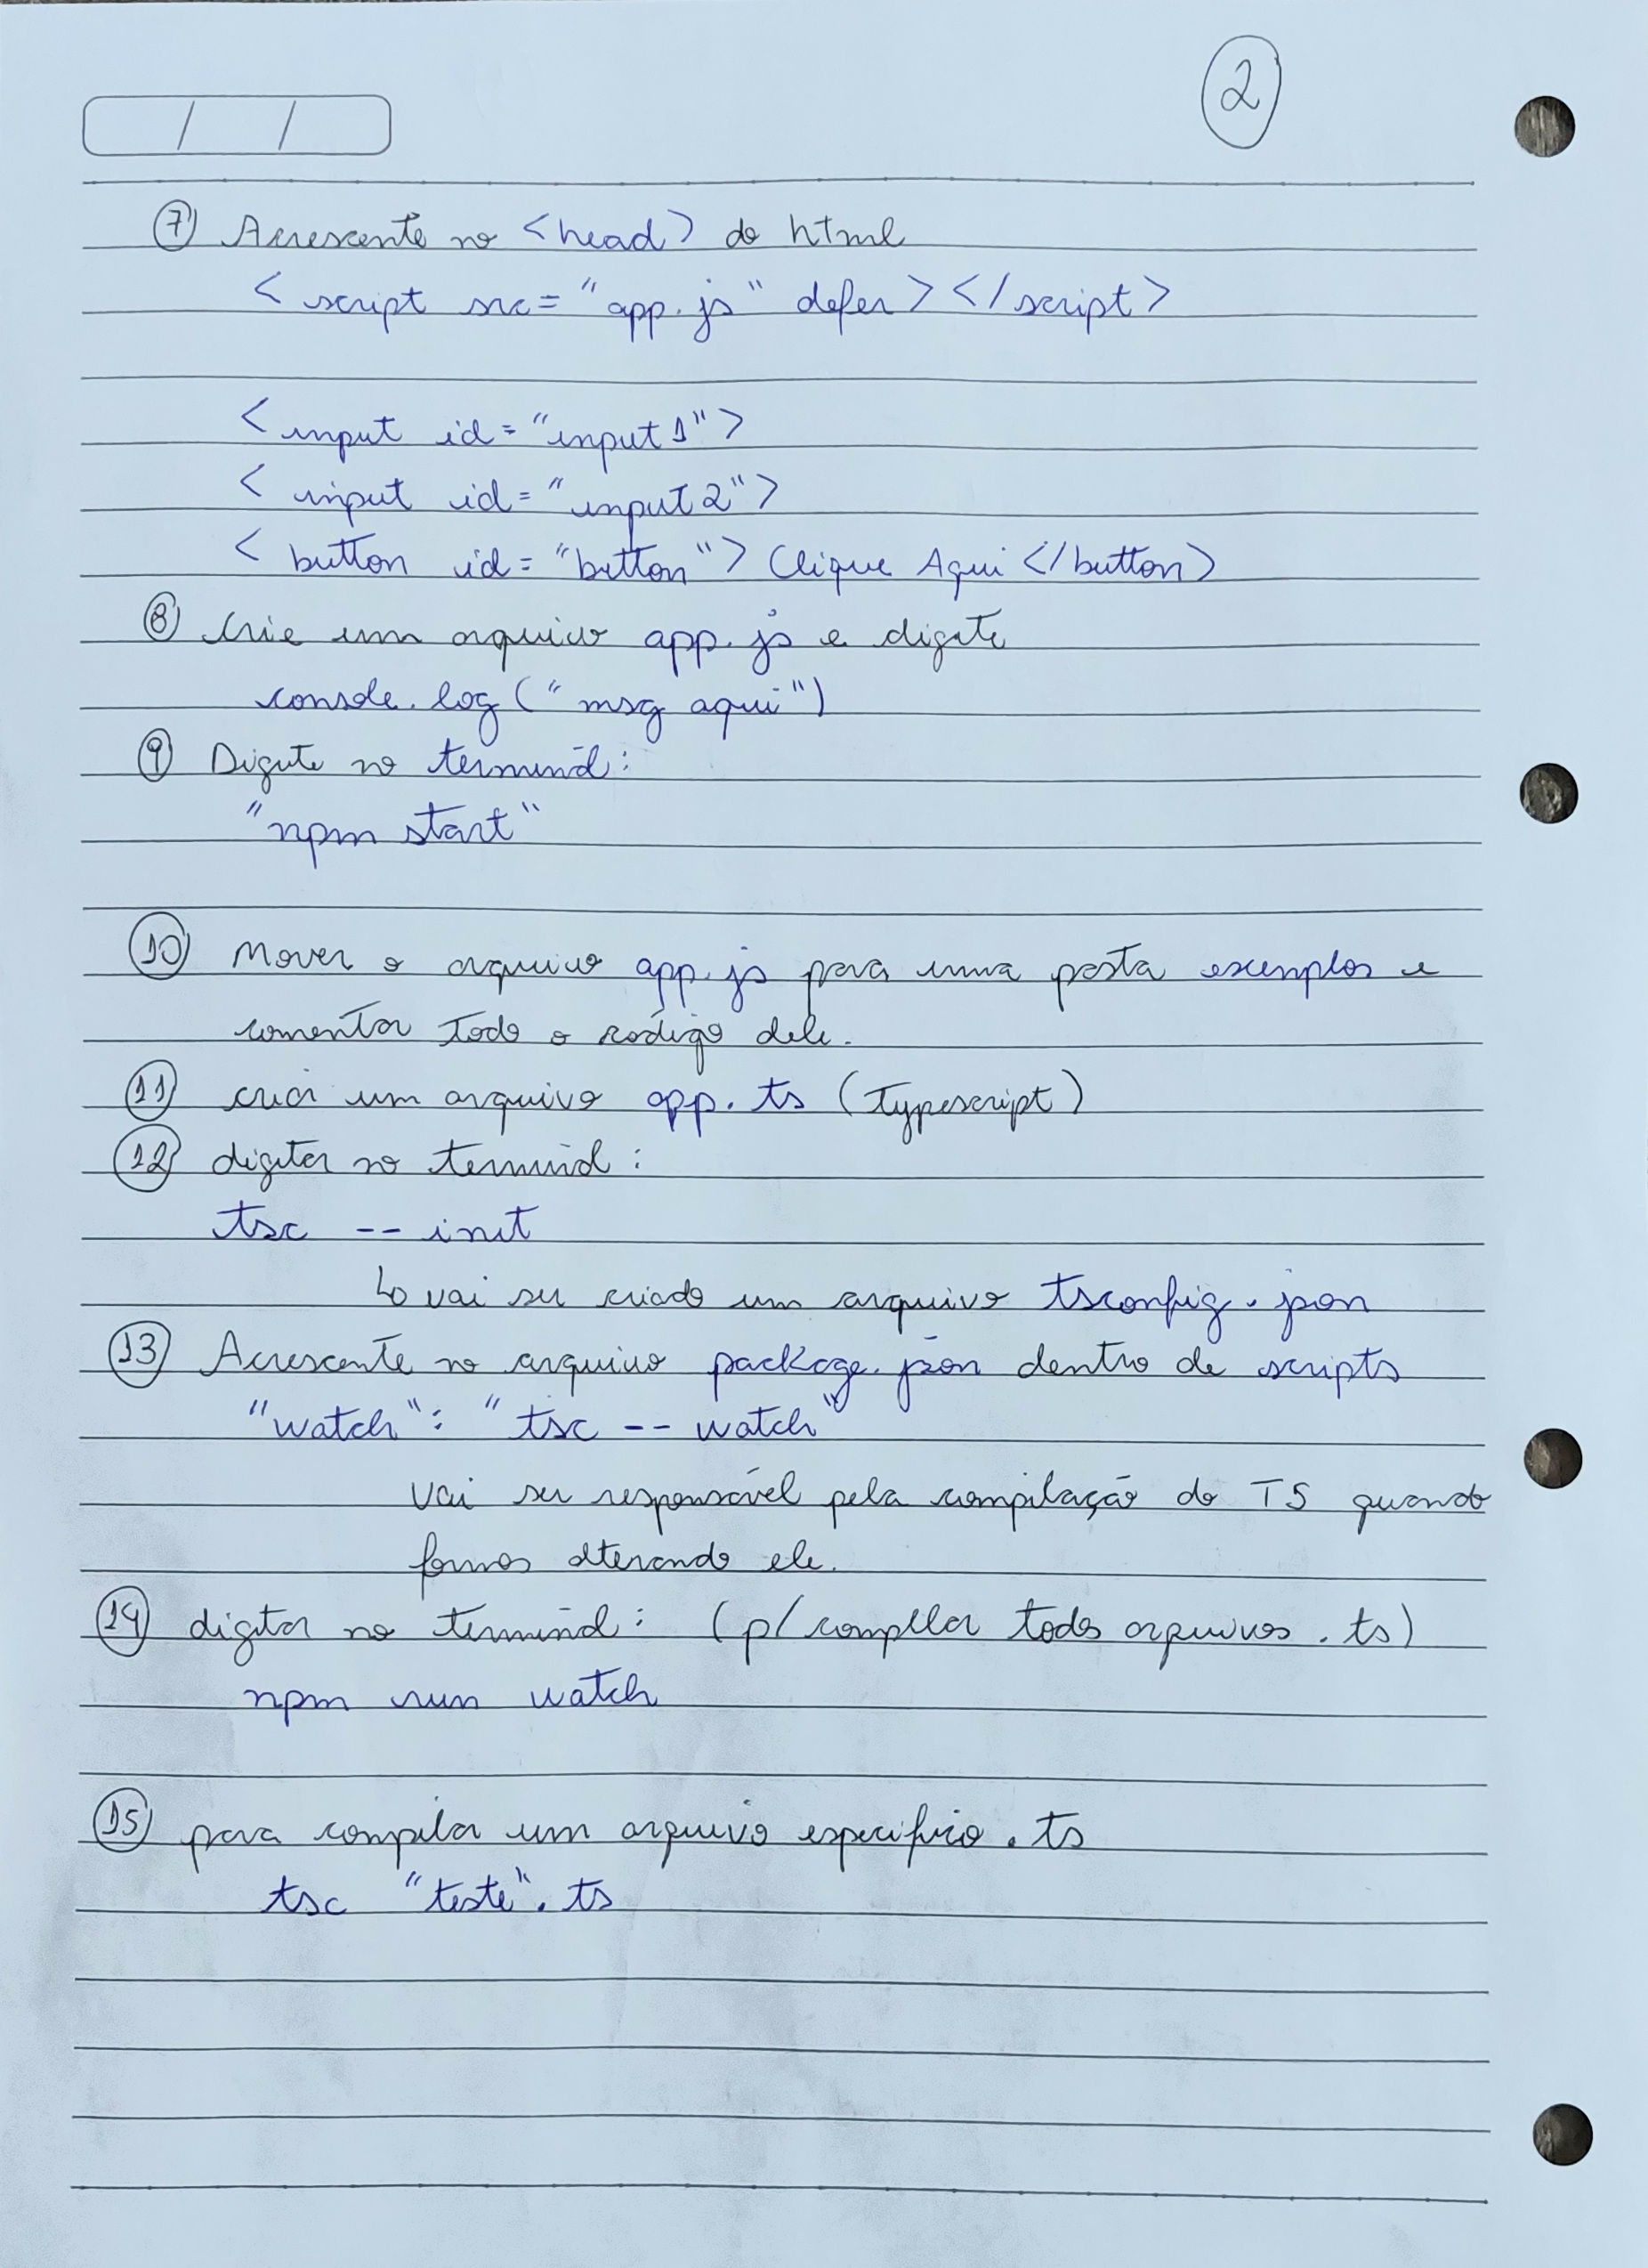 2
/ /
7 Acrescente no <head> do html
<script src="app.js" defer></script>
<input id="input1">
<input id="input2">
<button id="button">Clique Aqui</button>
8 Crie um arquivo app.js e digite
console.log("msg aqui")
9 Digite no terminal:
"npm start"
10 Mover o arquivo app.js para uma pasta exemplos e
comentar todo o código dele.
11 criar um arquivo app.ts (Typescript)
12 digitar no terminal:
tsc --init
↳ vai ser criado um arquivo tsconfig.json
13 Acrescente no arquivo package.json dentro de scripts
"watch": "tsc --watch"
vai ser responsável pela compilação do TS quando
formos alterando ele.
14 digitar no terminal: (p/ compilar todos arquivos .ts)
npm run watch
15 para compilar um arquivo especifico .ts
tsc "teste".ts